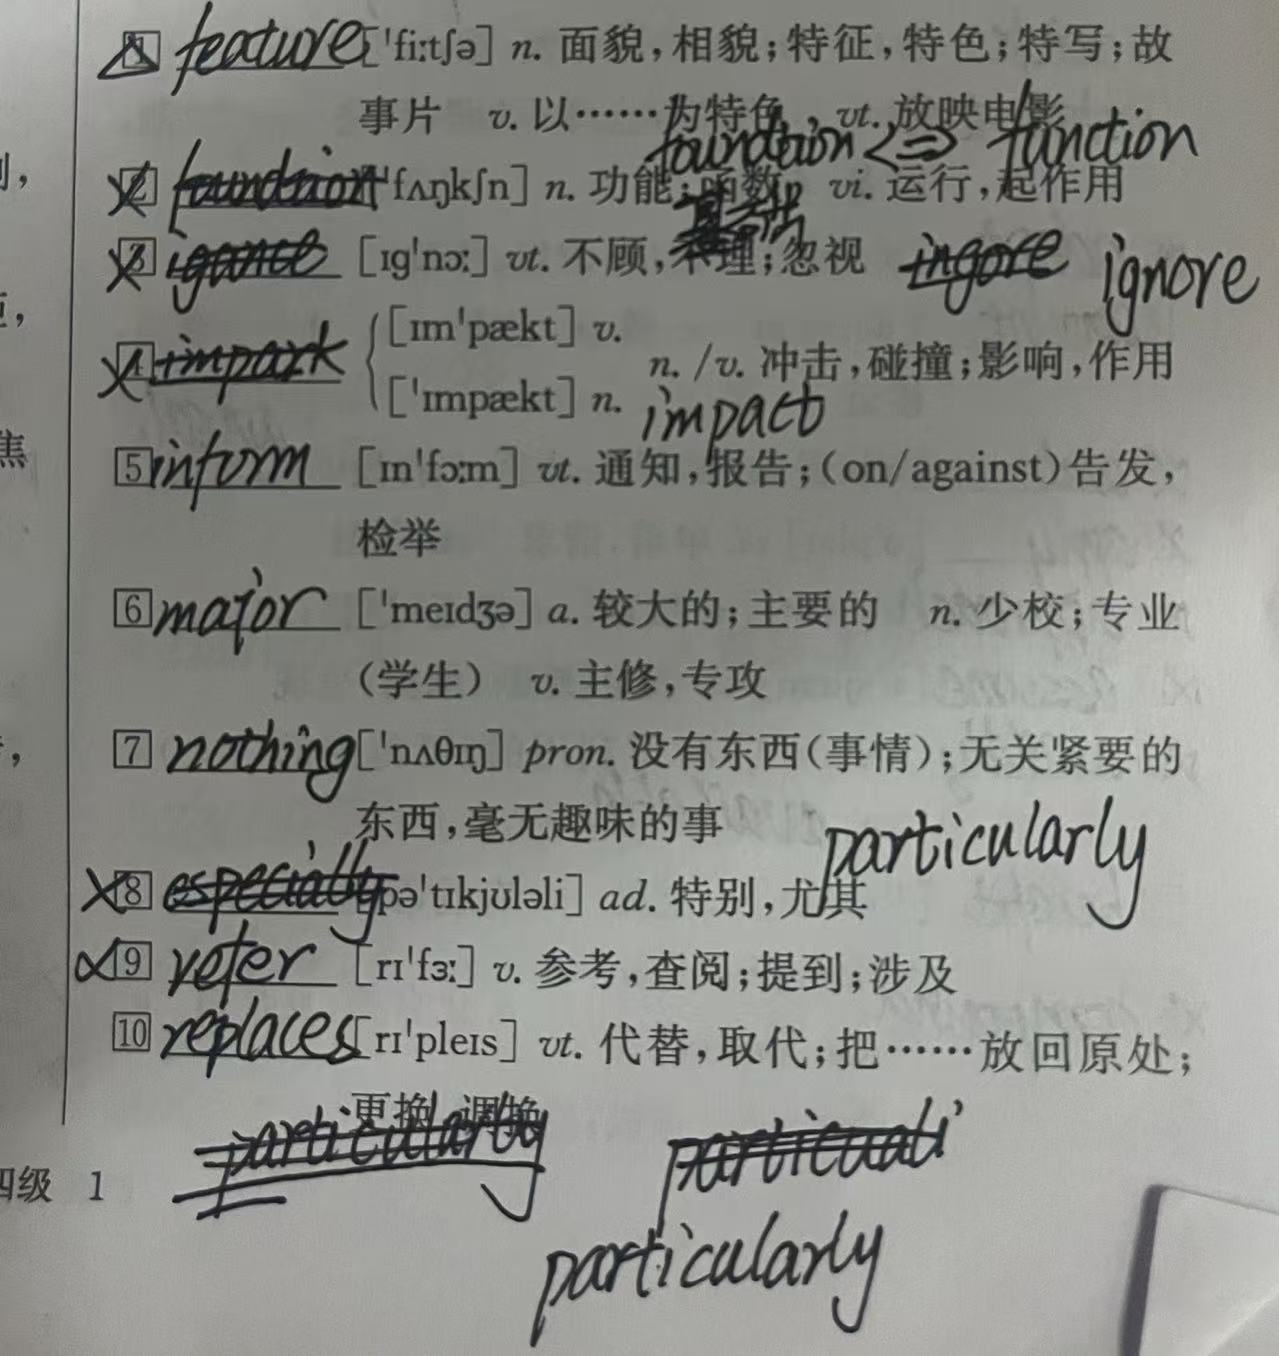 1 feature ['fiːtʃə] n. 面貌,相貌;特征,特色;特写;故
事片 v. 以……为特色 vt. 放映电影
foundation <=> function
2 foundation ['fʌŋkʃn] n. 功能;函数 vi. 运行,起作用
基础
3 igance [ɪg'nɔː] vt. 不顾,不理;忽视 ingore ignore
4 impark [ɪm'pækt] v.
n./v. 冲击,碰撞;影响,作用
['ɪmpækt] n. impact
5 inform [ɪn'fɔːm] vt. 通知,报告;(on/against)告发,
检举
6 major ['meɪdʒə] a. 较大的;主要的 n. 少校;专业
(学生) v. 主修,专攻
7 nothing ['nʌθɪŋ] pron. 没有东西(事情);无关紧要的
东西,毫无趣味的事
particularly
8 especially [pə'tɪkjʊləli] ad. 特别,尤其
9 refer [rɪ'fɜː] v. 参考,查阅;提到;涉及
10 replaces [rɪ'pleɪs] vt. 代替,取代;把……放回原处;
更换,调换
particularly particuali
四级 1
particularly